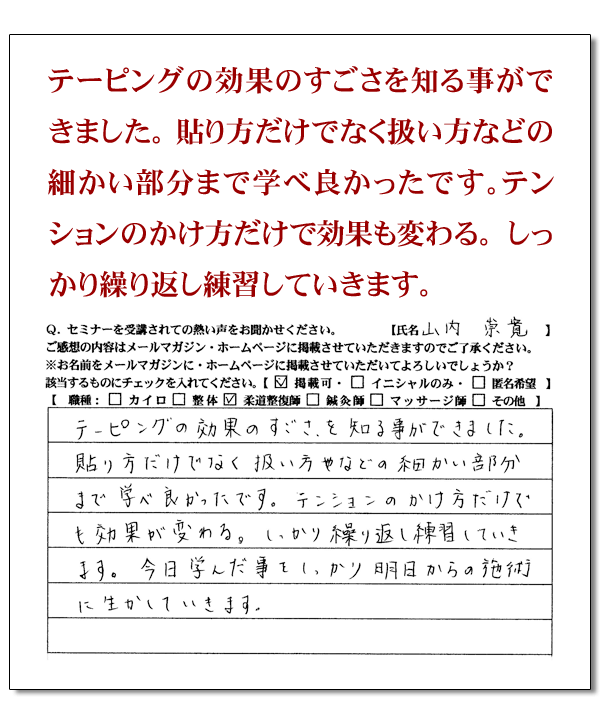 テーピングの効果のすごさを知る事がで
きました。貼り方だけでなく扱い方などの
細かい部分まで学べ良かったです。テン
ションのかけ方だけで効果も変わる。しっ
かり繰り返し練習していきます。
Q. セミナーを受講されての熱い声をお聞かせください。 【氏名 山内 崇寛 】
ご感想の内容はメールマガジン・ホームページに掲載させていただきますのでご了承ください。
※お名前をメールマガジンに・ホームページに掲載させていただいてよろしいでしょうか？
該当するものにチェックを入れてください。【 ☑ 掲載可・ □ イニシャルのみ・ □ 匿名希望 】
【 職種： □ カイロ □ 整体 ☑ 柔道整復師 □ 鍼灸師 □ マッサージ師 □ その他 】
テーピングの効果のすごさ、を知る事ができました。
貼り方だけでなく扱い方やなどの細かい部分
まで学べ良かったです。テンションのかけ方だけで
も効果が変わる。しっかり繰り返し練習していき
ます。今日学んだ事をしっかり明日からの施術
に生かしていきます。